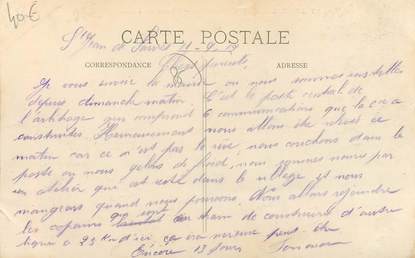 40€
St Jean de 11-9-19
CARTE POSTALE
CORRESPONDANCE ADRESSE
Chers parents,
Je vous envoie la mairie ou nous sommes installés
depuis dimanche matin. C'est le poste central de
l'arbitrage qui comprend 4 communications que la Cie a
construites. Heureusement nous allons être relevés ce
matin car ce n'est pas le rêve nous couchons dans le
poste ou nous gelons de froid, nous sommes nourris par
un atelier qui est resté dans le village et nous
mangeons quand nous pouvons. Nous allons rejoindre
les copains qui sont en train de construire d'autre
ligne à 25 Km d'ici ça ira mieux peut être
Encore 13 jours